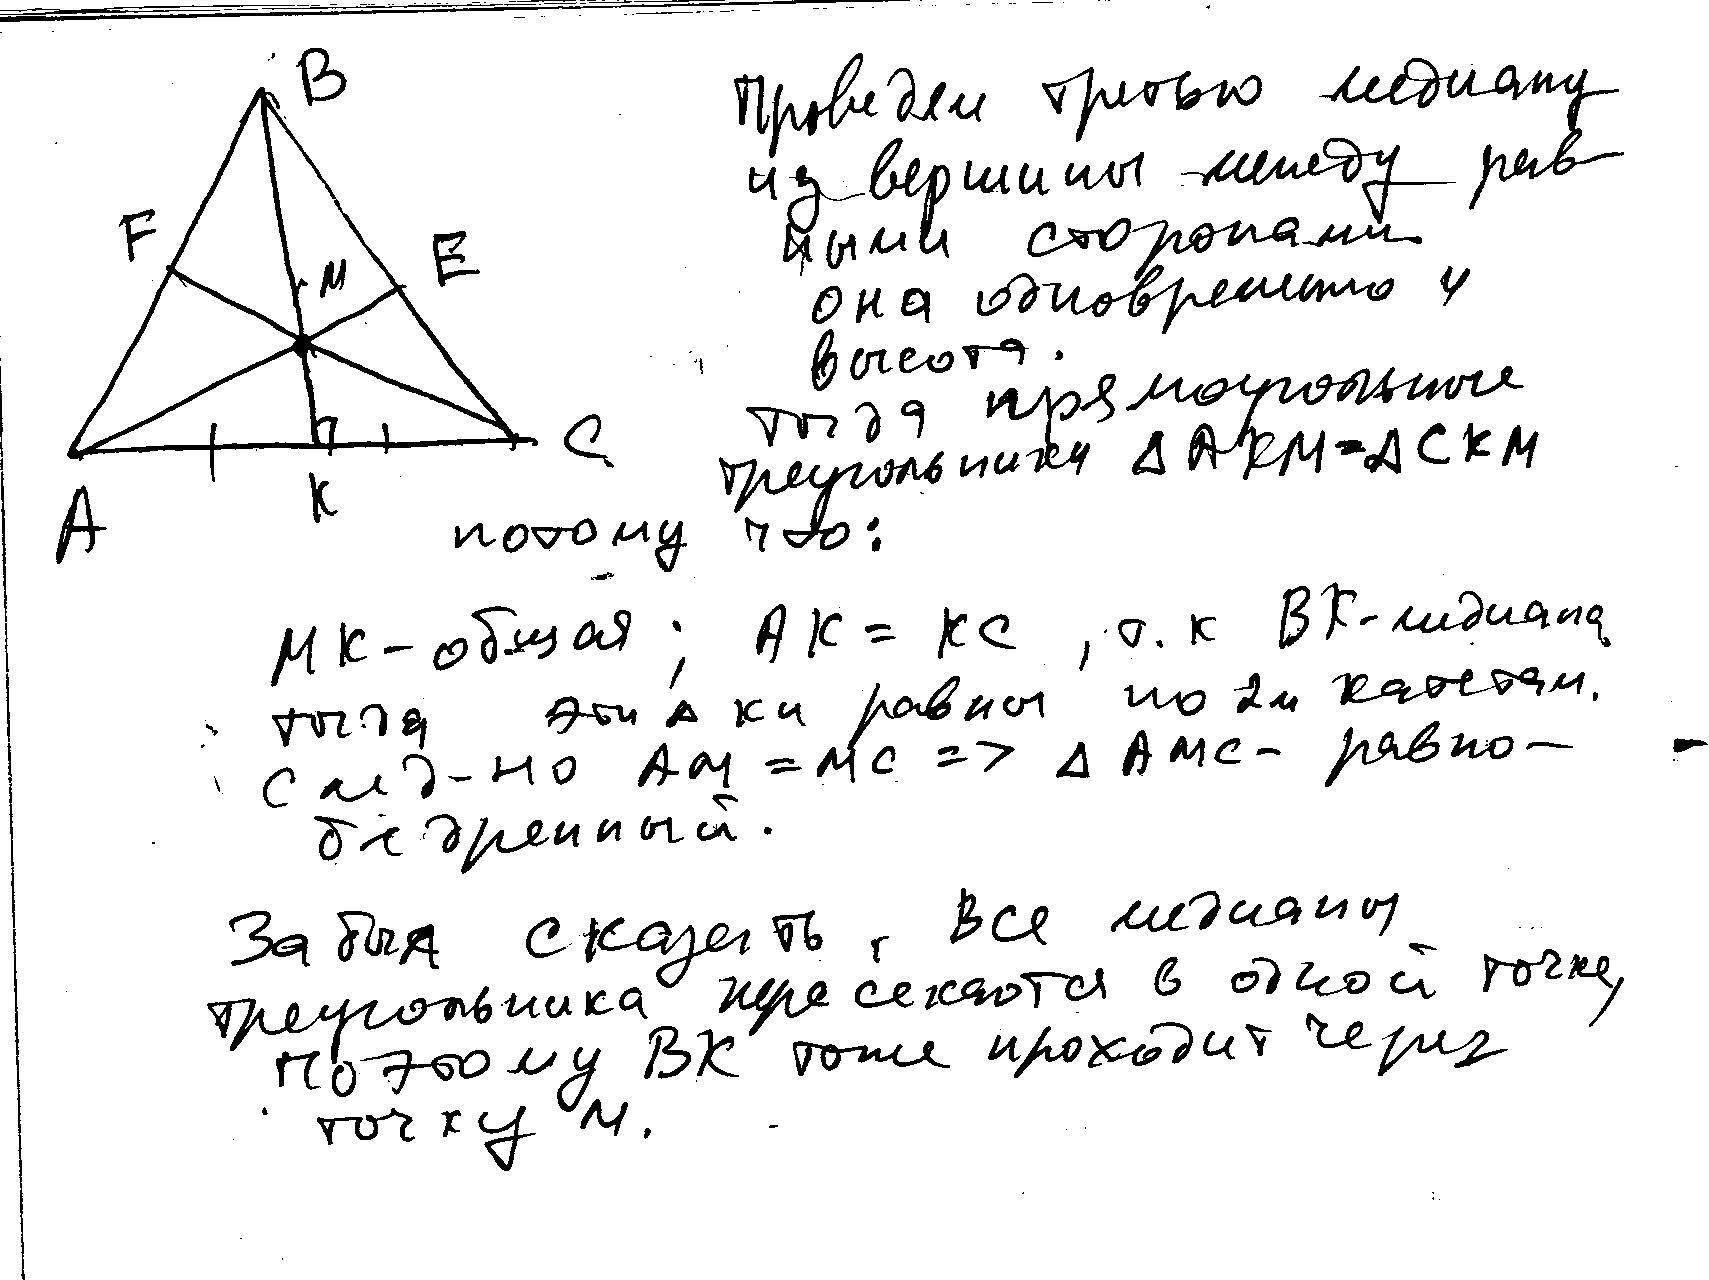 B
F
E
M
A
K
C
Проведем третью медиану
из вершины между рав-
ными сторонами
она одновременно и
высота.
тогда прямоугольные
треугольники Δ AKM = Δ CKM
потому что:
MK - общая ; AK = KC , т.к BK - медиана
тогда эти Δ ки равны по 2м катетам.
След-но AM = MC => Δ AMC - равно-
бедренный.
Забыл сказать, все медианы
треугольника пересекаются в одной точке,
поэтому BK тоже проходит через
точку M.